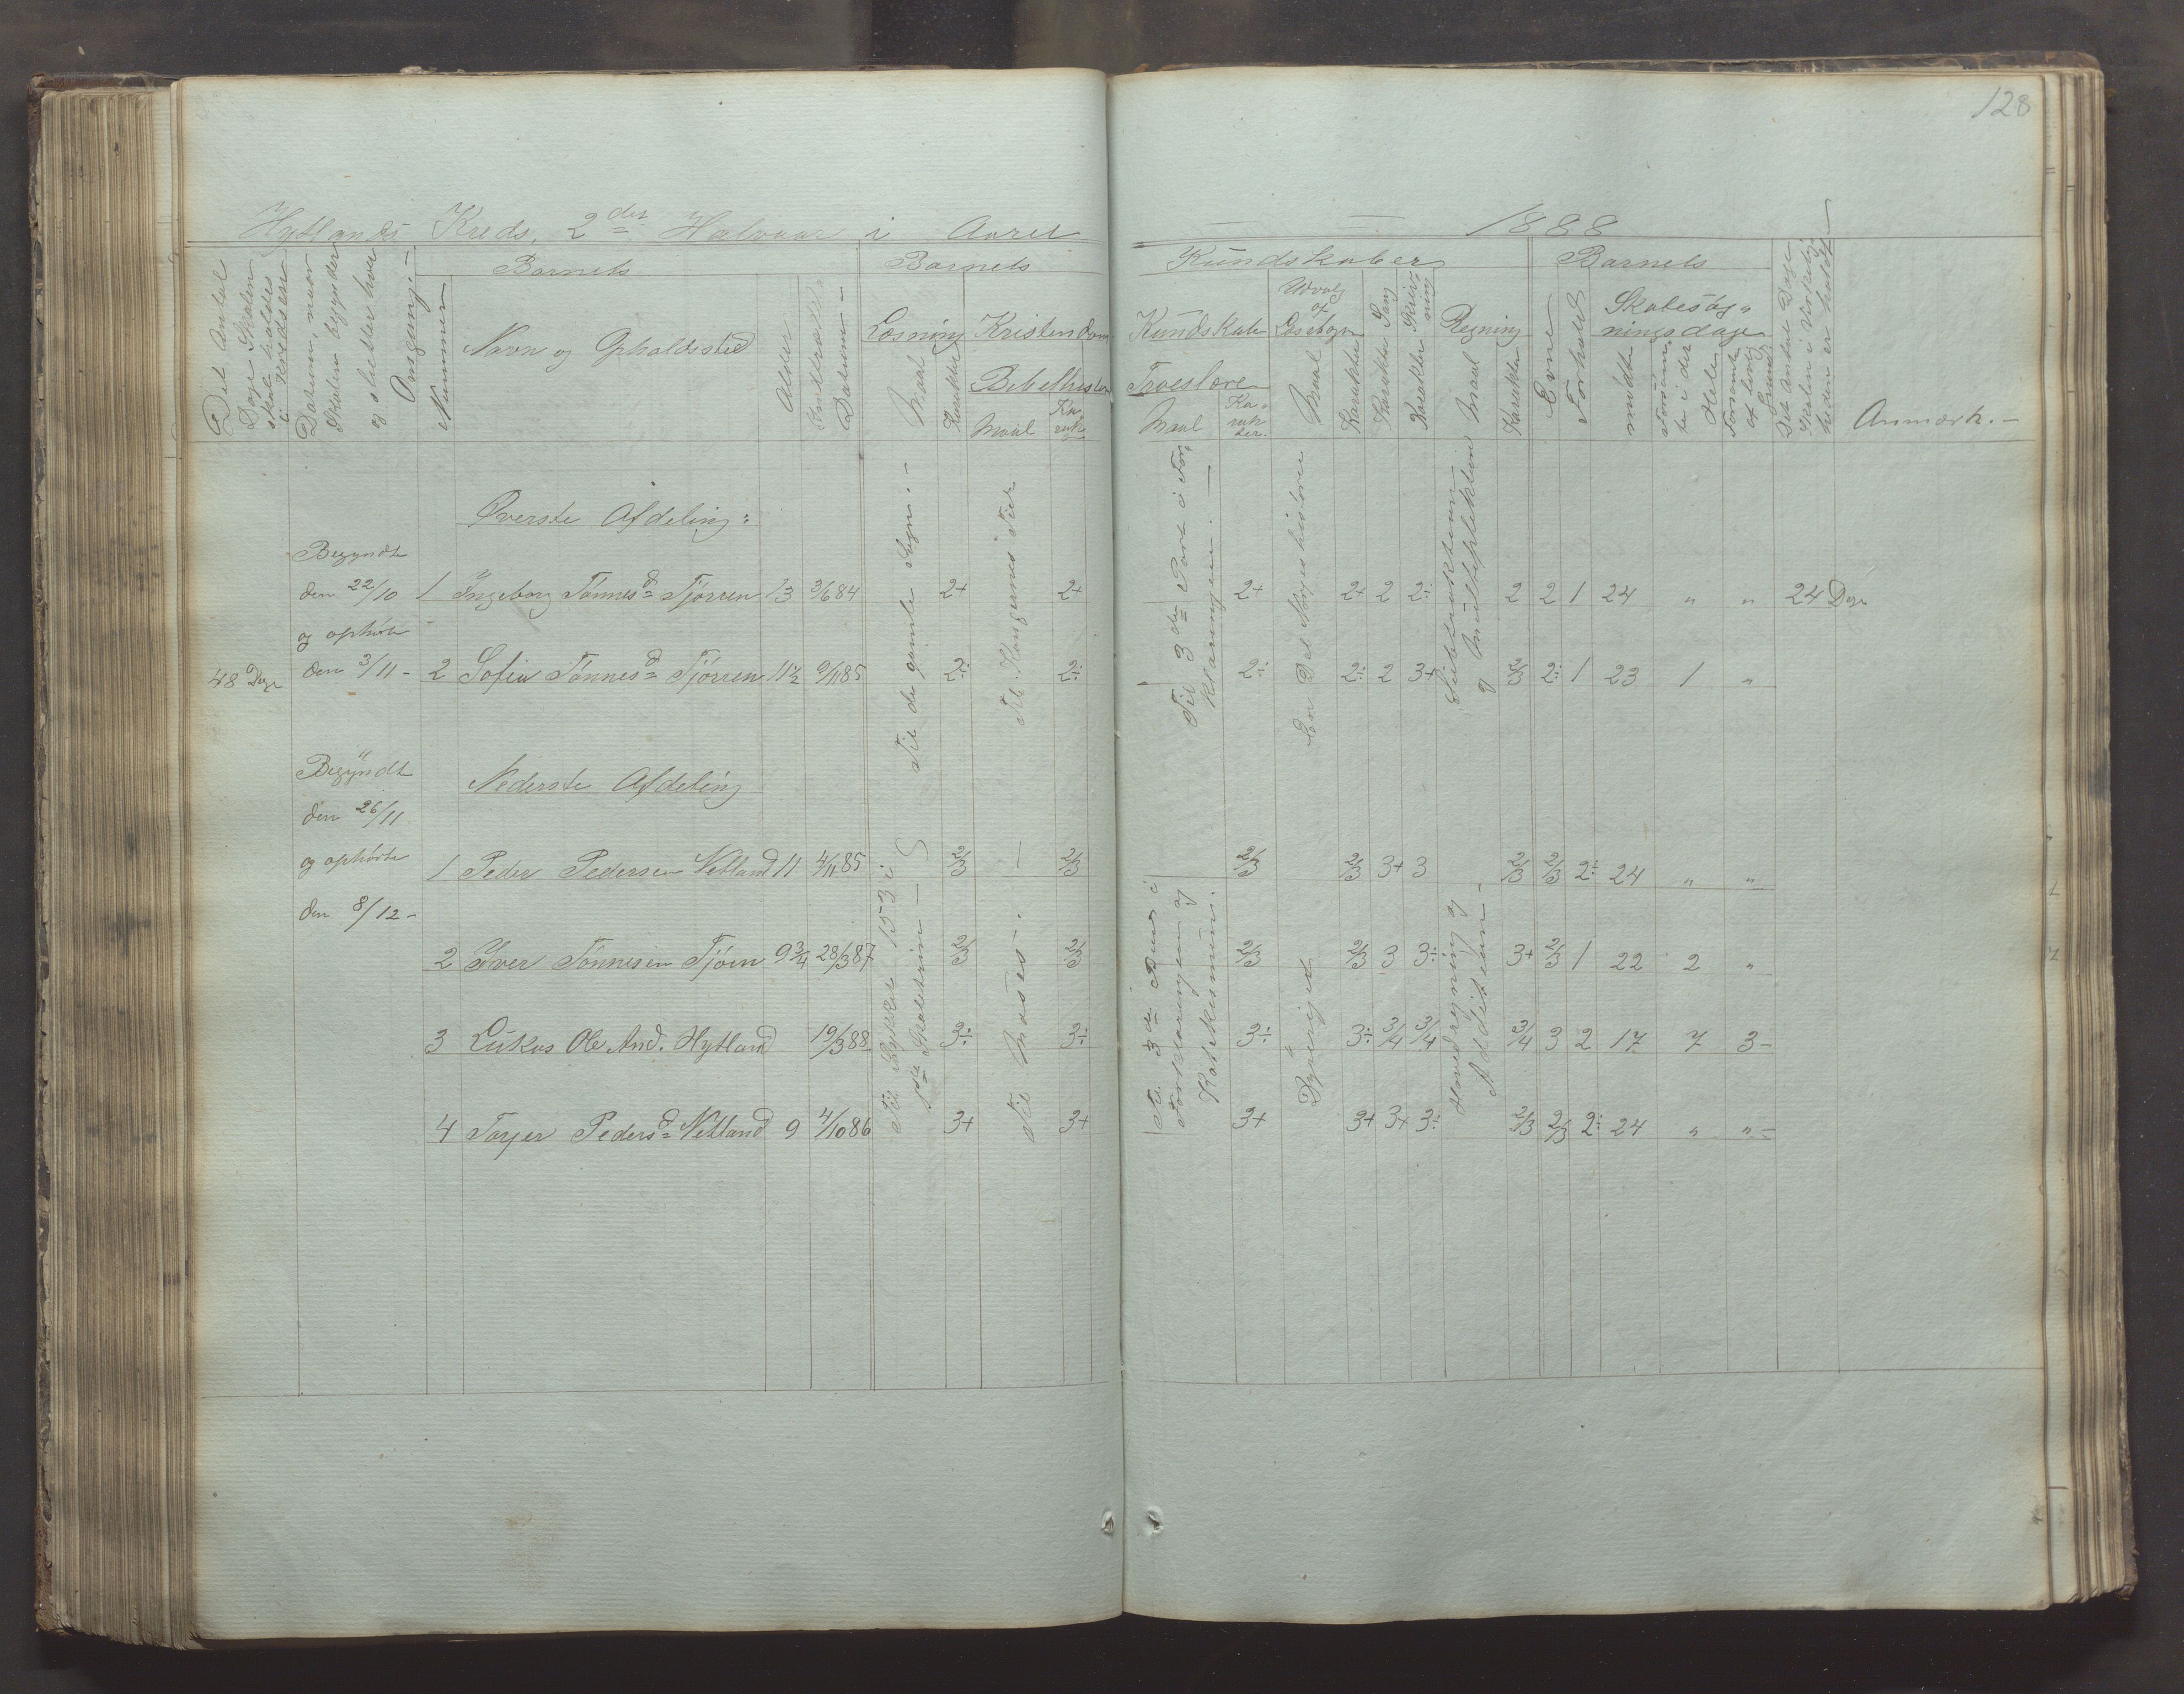 128
Hytlands Kreds, 2det Halvaar i Aaret 1888
Det Antal Dage Skolen skal holdes i Kredsen
Datum, naar Skolen begynder og slutter hver Omgang. -
Nummer
Barnets
Navn og Opholdssted
Alder
Indtrædelses Datum -
Barnets
Kundskaber
Læsning
Maal
Karakter
Kristendoms
Kundskab
Bibelhistorie
Maal
Karakter
Troeslære
Maal
Karakter.
Udvalg af Læsebogen
Maal
Karakter
Sang
Karakter
Skrivning
Karakter
Regning
Maal
Karakter
Barnets
Evne
Forhold
Skolesøgningsdage
mødte
forsømte i det Hele
forsømte af lovl. Grund
Det Antal Dage Skolen i Virkeligheden er holdt -
Anmærk. -
Øverste Afdeling:
48 Dage
Begyndte
den 22/10
og ophørte
den 3/11 -
1 Ingeborg Tønnesd. Tjørren 13 3/6 84 2+ 2+ 2+ 2+ 2 2÷ 2 2 1 24 " " 24 Dage
2 Sofie Tønnesd. Tjørren 11½ 9/11 85 2÷ 2÷ 2÷ 2÷ 2 3+ 2/3 2÷ 1 23 1 "
Til de gamle Sagn. -
Til Kongernes Tid
Til 3die Part i Forklaringen. -
En Del Norgeshistorie
Subtraktion og Multiplikation
Begyndte
den 26/11
og ophørte
den 8/12 -
Nederste Afdeling
1 Peder Pedersen Netland 11 4/11 85 2/3 2/3 2/3 2/3 3+ 3 2/3 2/3 2÷ 24 " "
2 Iver Tønnesen Tjørn 9¾ 28/3 87 2/3 2/3 2/3 2/3 3 3÷ 3+ 2/3 1 22 2 "
3 Lukas Ole And. Hytland 19/3 88 3÷ 3÷ 3÷ 3÷ 3/4 3/4 3/4 3 2 17 7 3 -
4 Torjer Pedersd. Netland 9 4/10 86 3+ 3+ 3+ 3+ 3+ 3÷ 2/3 2/3 2÷ 24 " " -
Til Stykke 153 i
Til Moses. -
Til 3die i Forklaringen og Katekismum.
Dyreriget
Hovedregning og Addition -